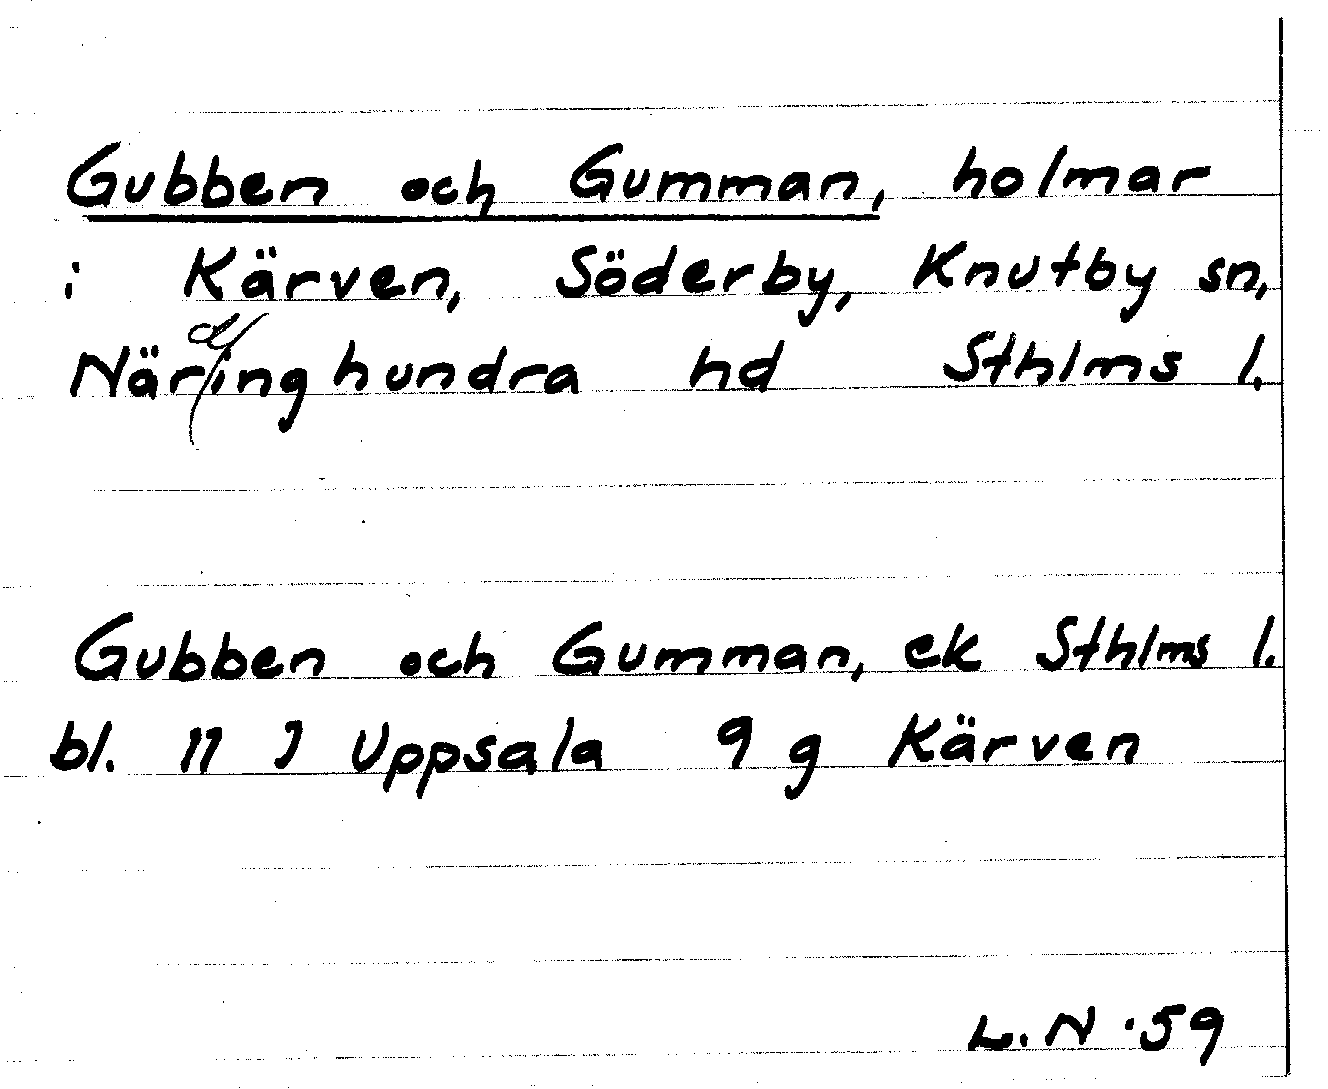 Gubben och Gumman, holmar
i Kärven, Söderby, Knutby sn,
Närdinghundra hd Sthlms l.
Gubben och Gumman, ek Sthlms l.
bl. 11 J Uppsala 9 g Kärven
L. N. 59